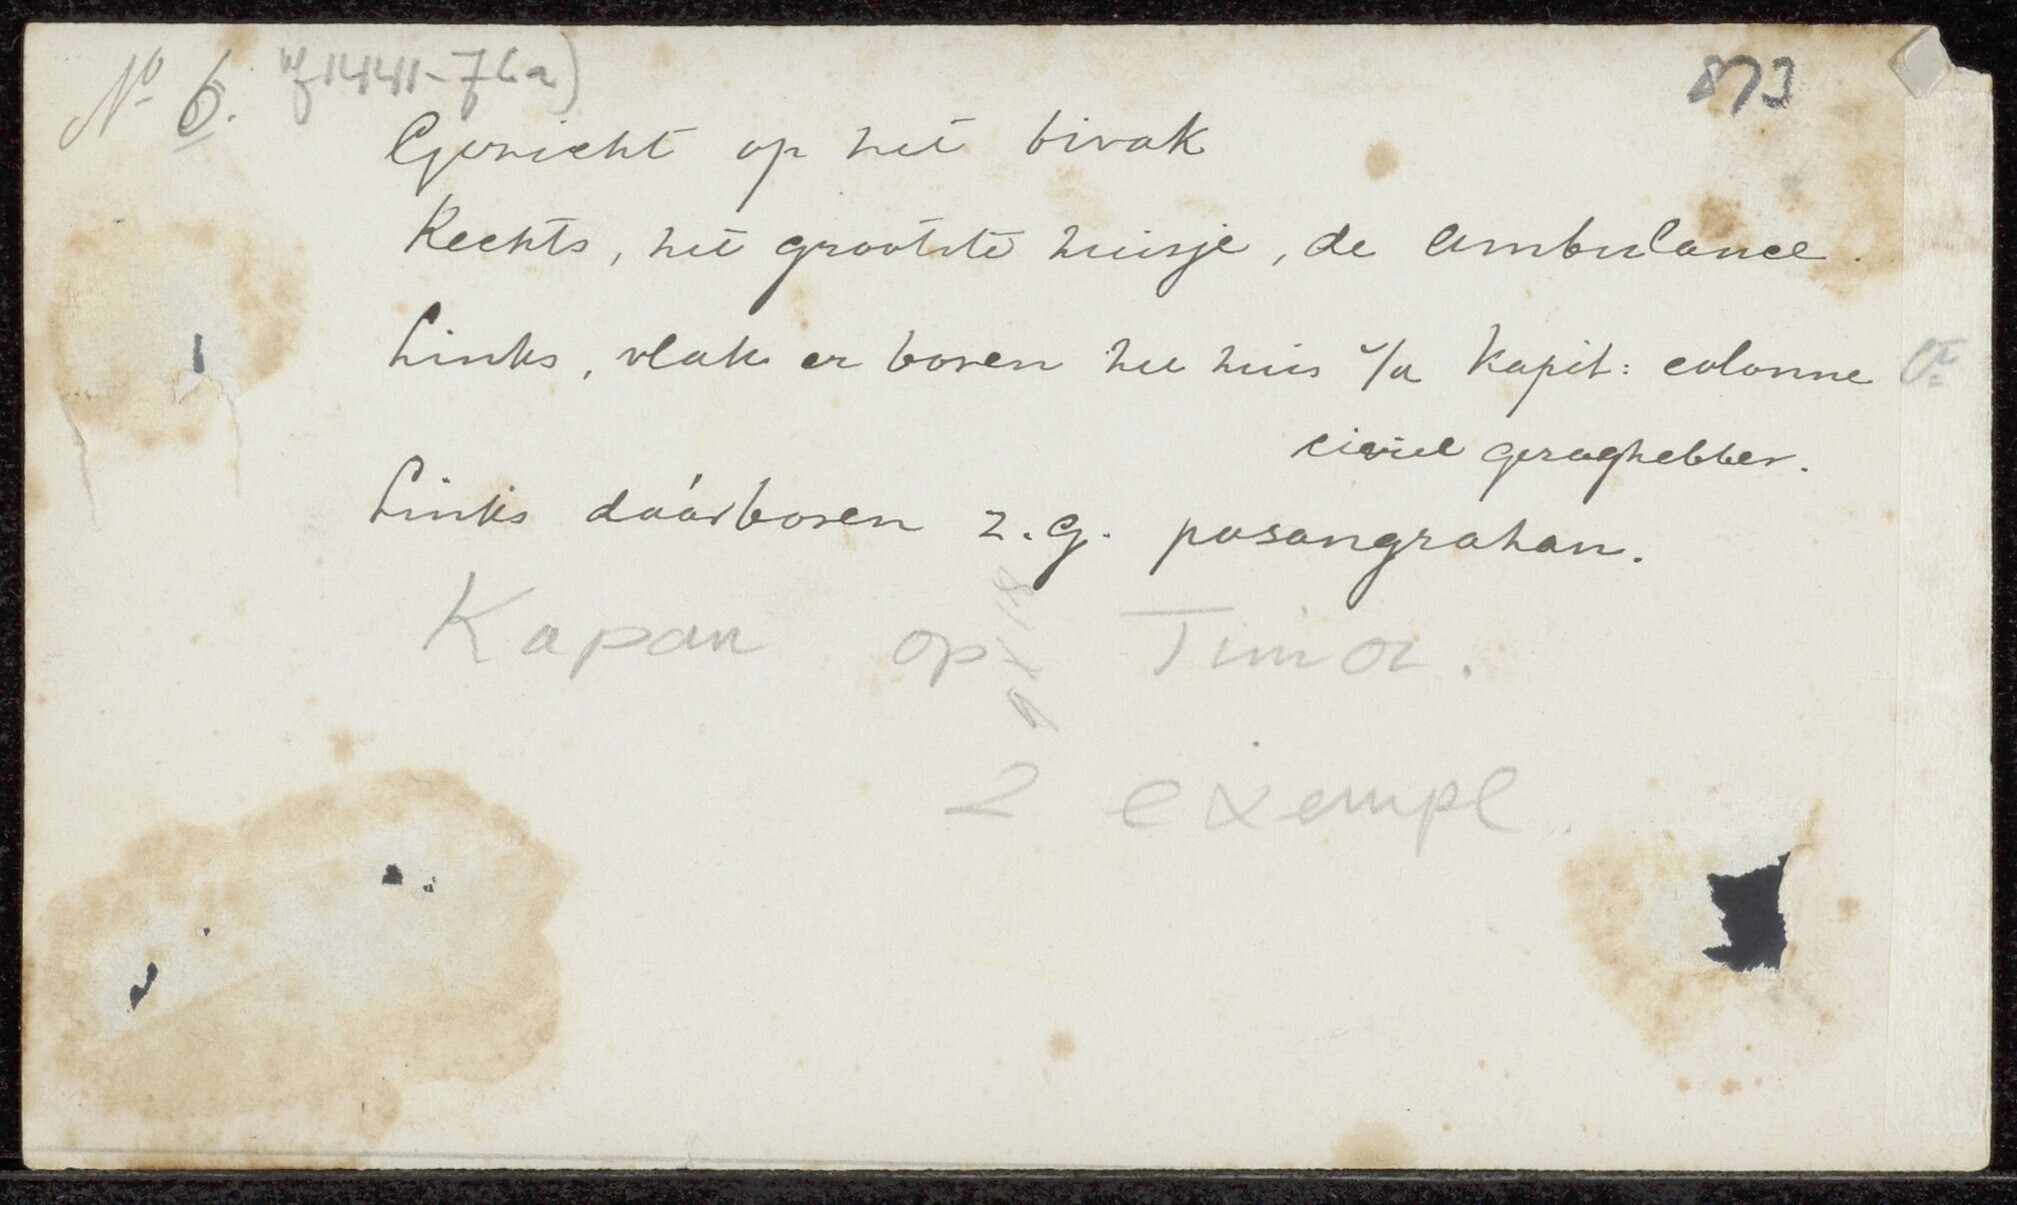 No 6. 873
Gericht op het bivak
Rechts, het grootste huisje, de ambulance.
Links, vlak er boven het huis v/d Kapit: colonne
civiel gezaghebber.
Links dáárboven z.g. pasangrahan.
Kapan op Timor.
2 exempl.